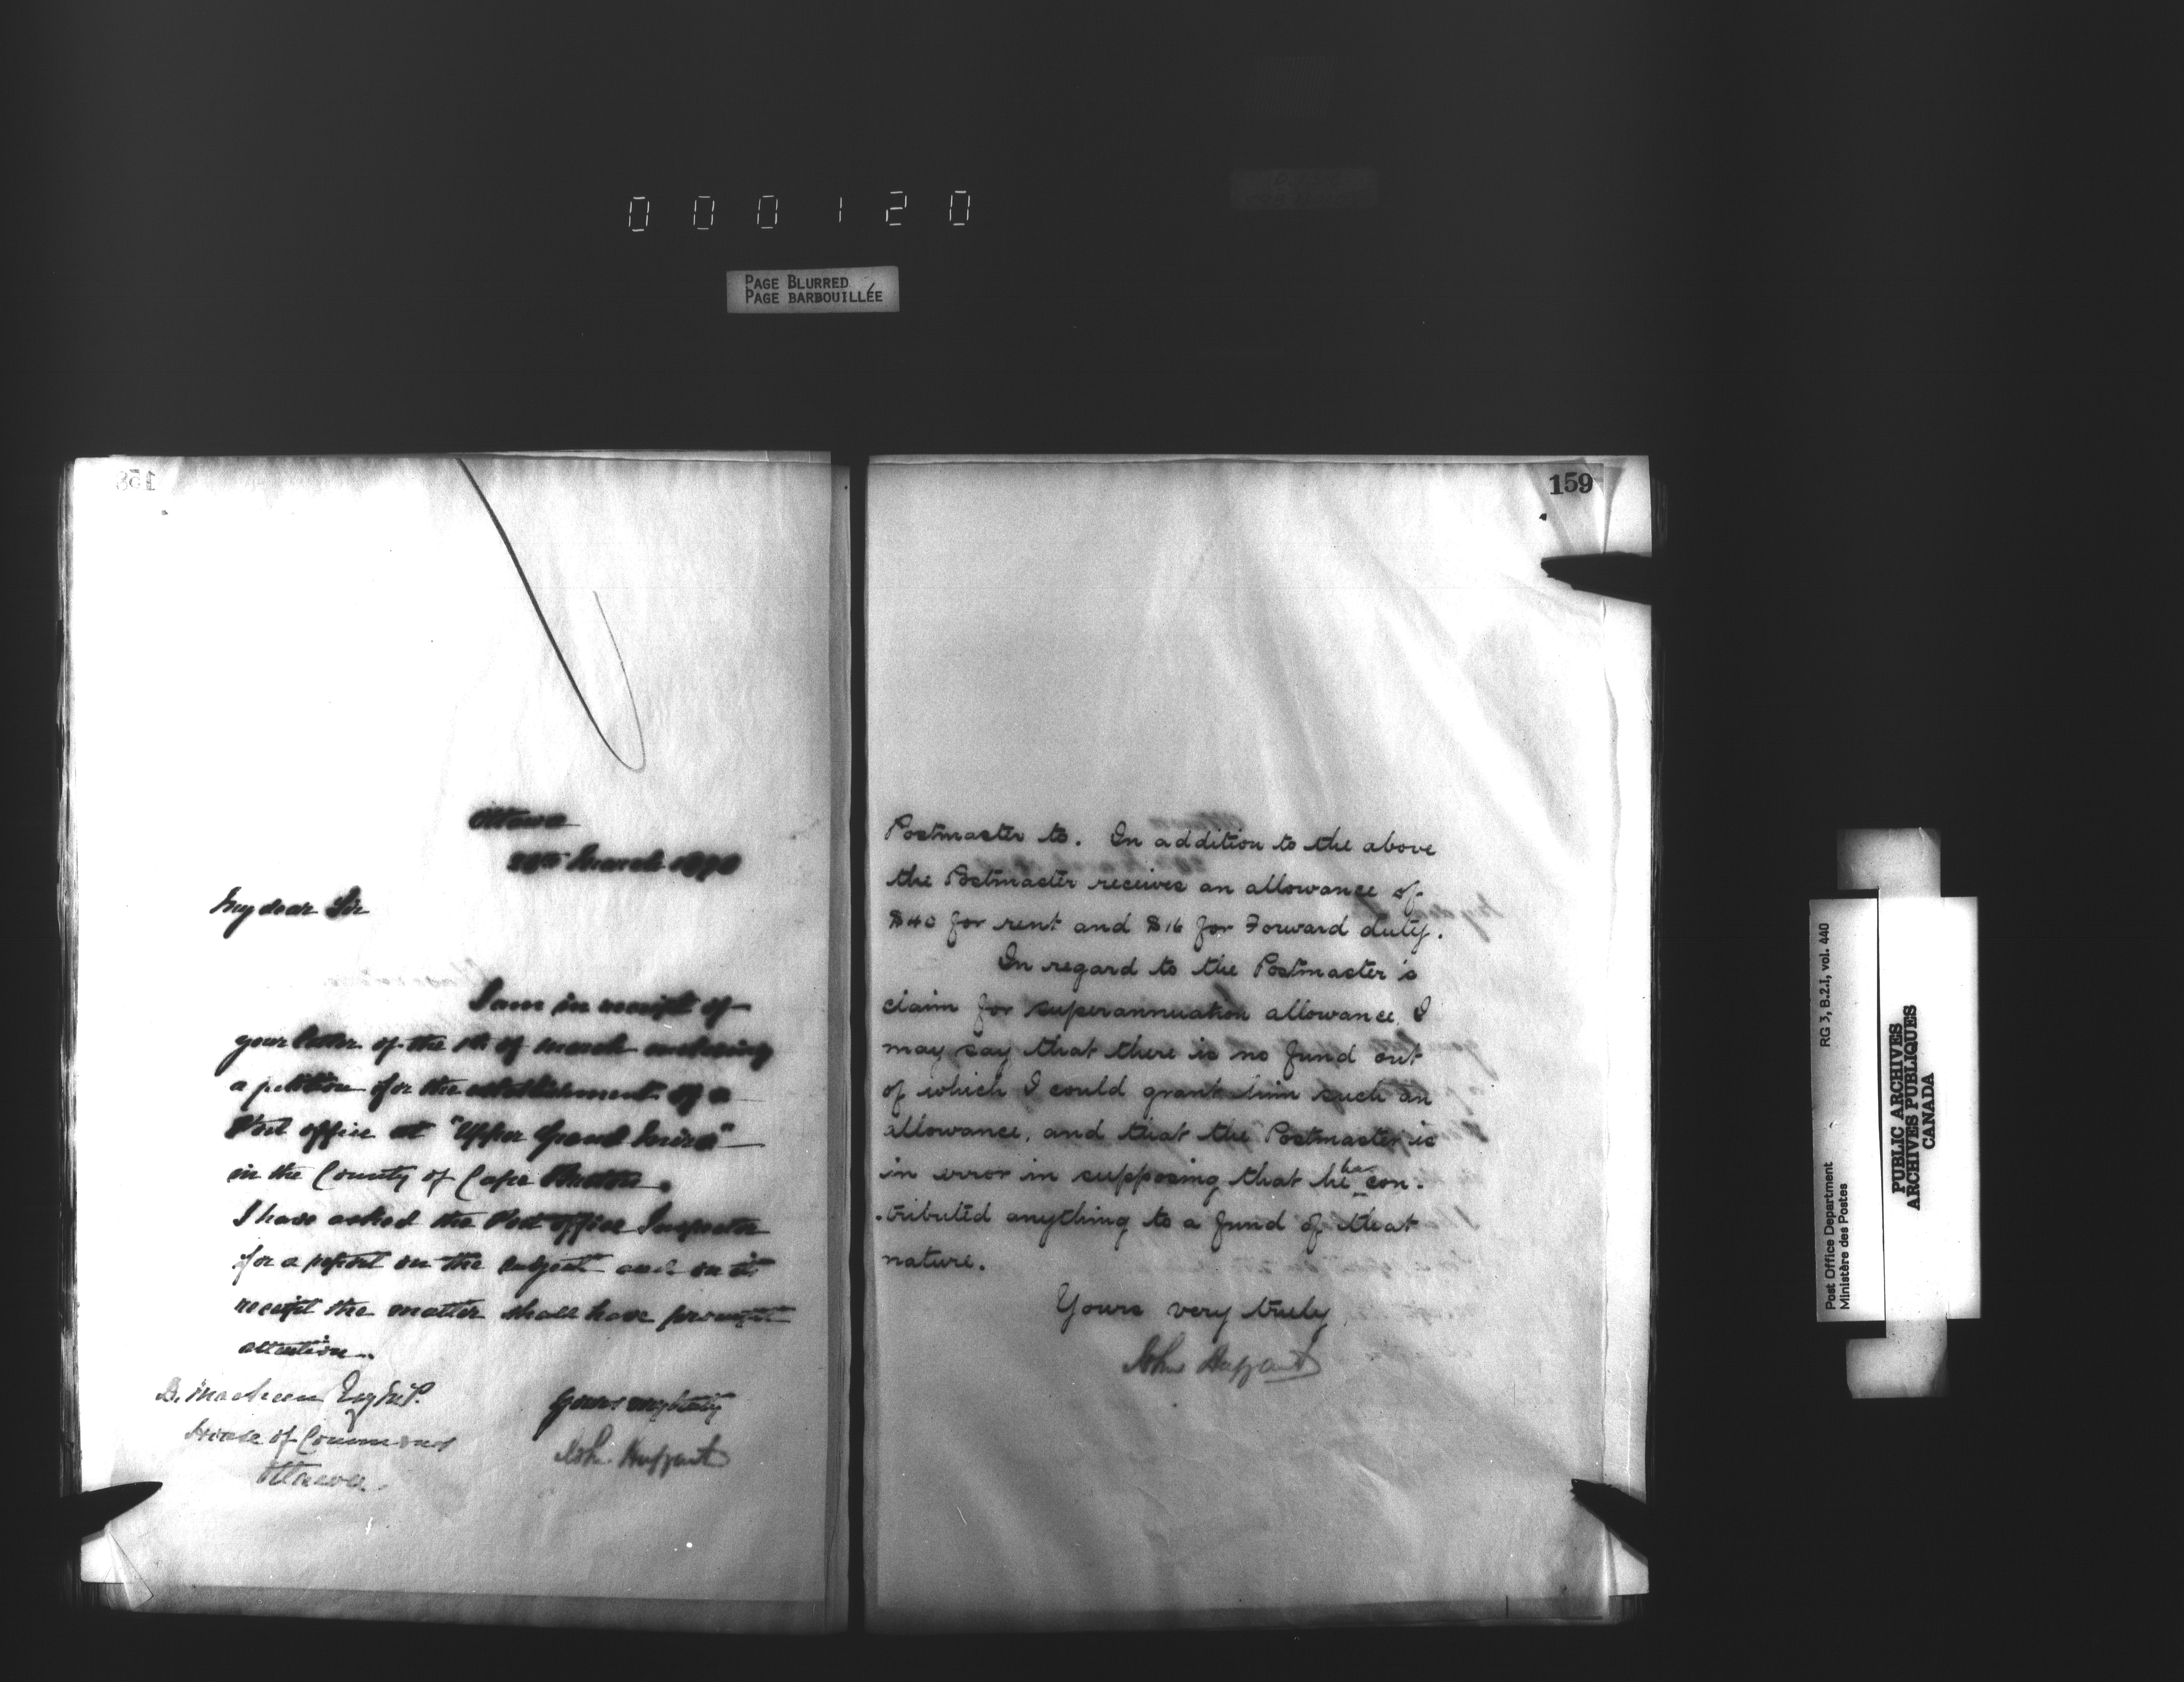 000120
PAGE BLURRED
PAGE BARBOUILLÉE
158
Ottawa
March 1890
My dear Sir
I am in receipt of
your letter of the of March enclosing
a petition for the establishment of a
Post office at "Upper Grand Mira"
in the County of Cape Breton.
I have asked the Post office Inspector
for a report on the subject and on its
receipt the matter shall have prompt
attention.
Yours very truly
John Haggart
House of Commons
Ottawa
159
Postmaster to. In addition to the above
the Postmaster receives an allowance of
$40 for rent and $16 for Forward duty.
In regard to the Postmaster's
claim for superannuation allowance, I
may say that there is no fund out
of which I could grant him such an
allowance, and that the Postmaster is
in error in supposing that he has con-
-tributed anything to a fund of that
nature.
Yours very truly
John Haggart
Post Office Department
Ministère des Postes
RG 3, B.2.I, vol. 440
PUBLIC ARCHIVES
ARCHIVES PUBLIQUES
CANADA